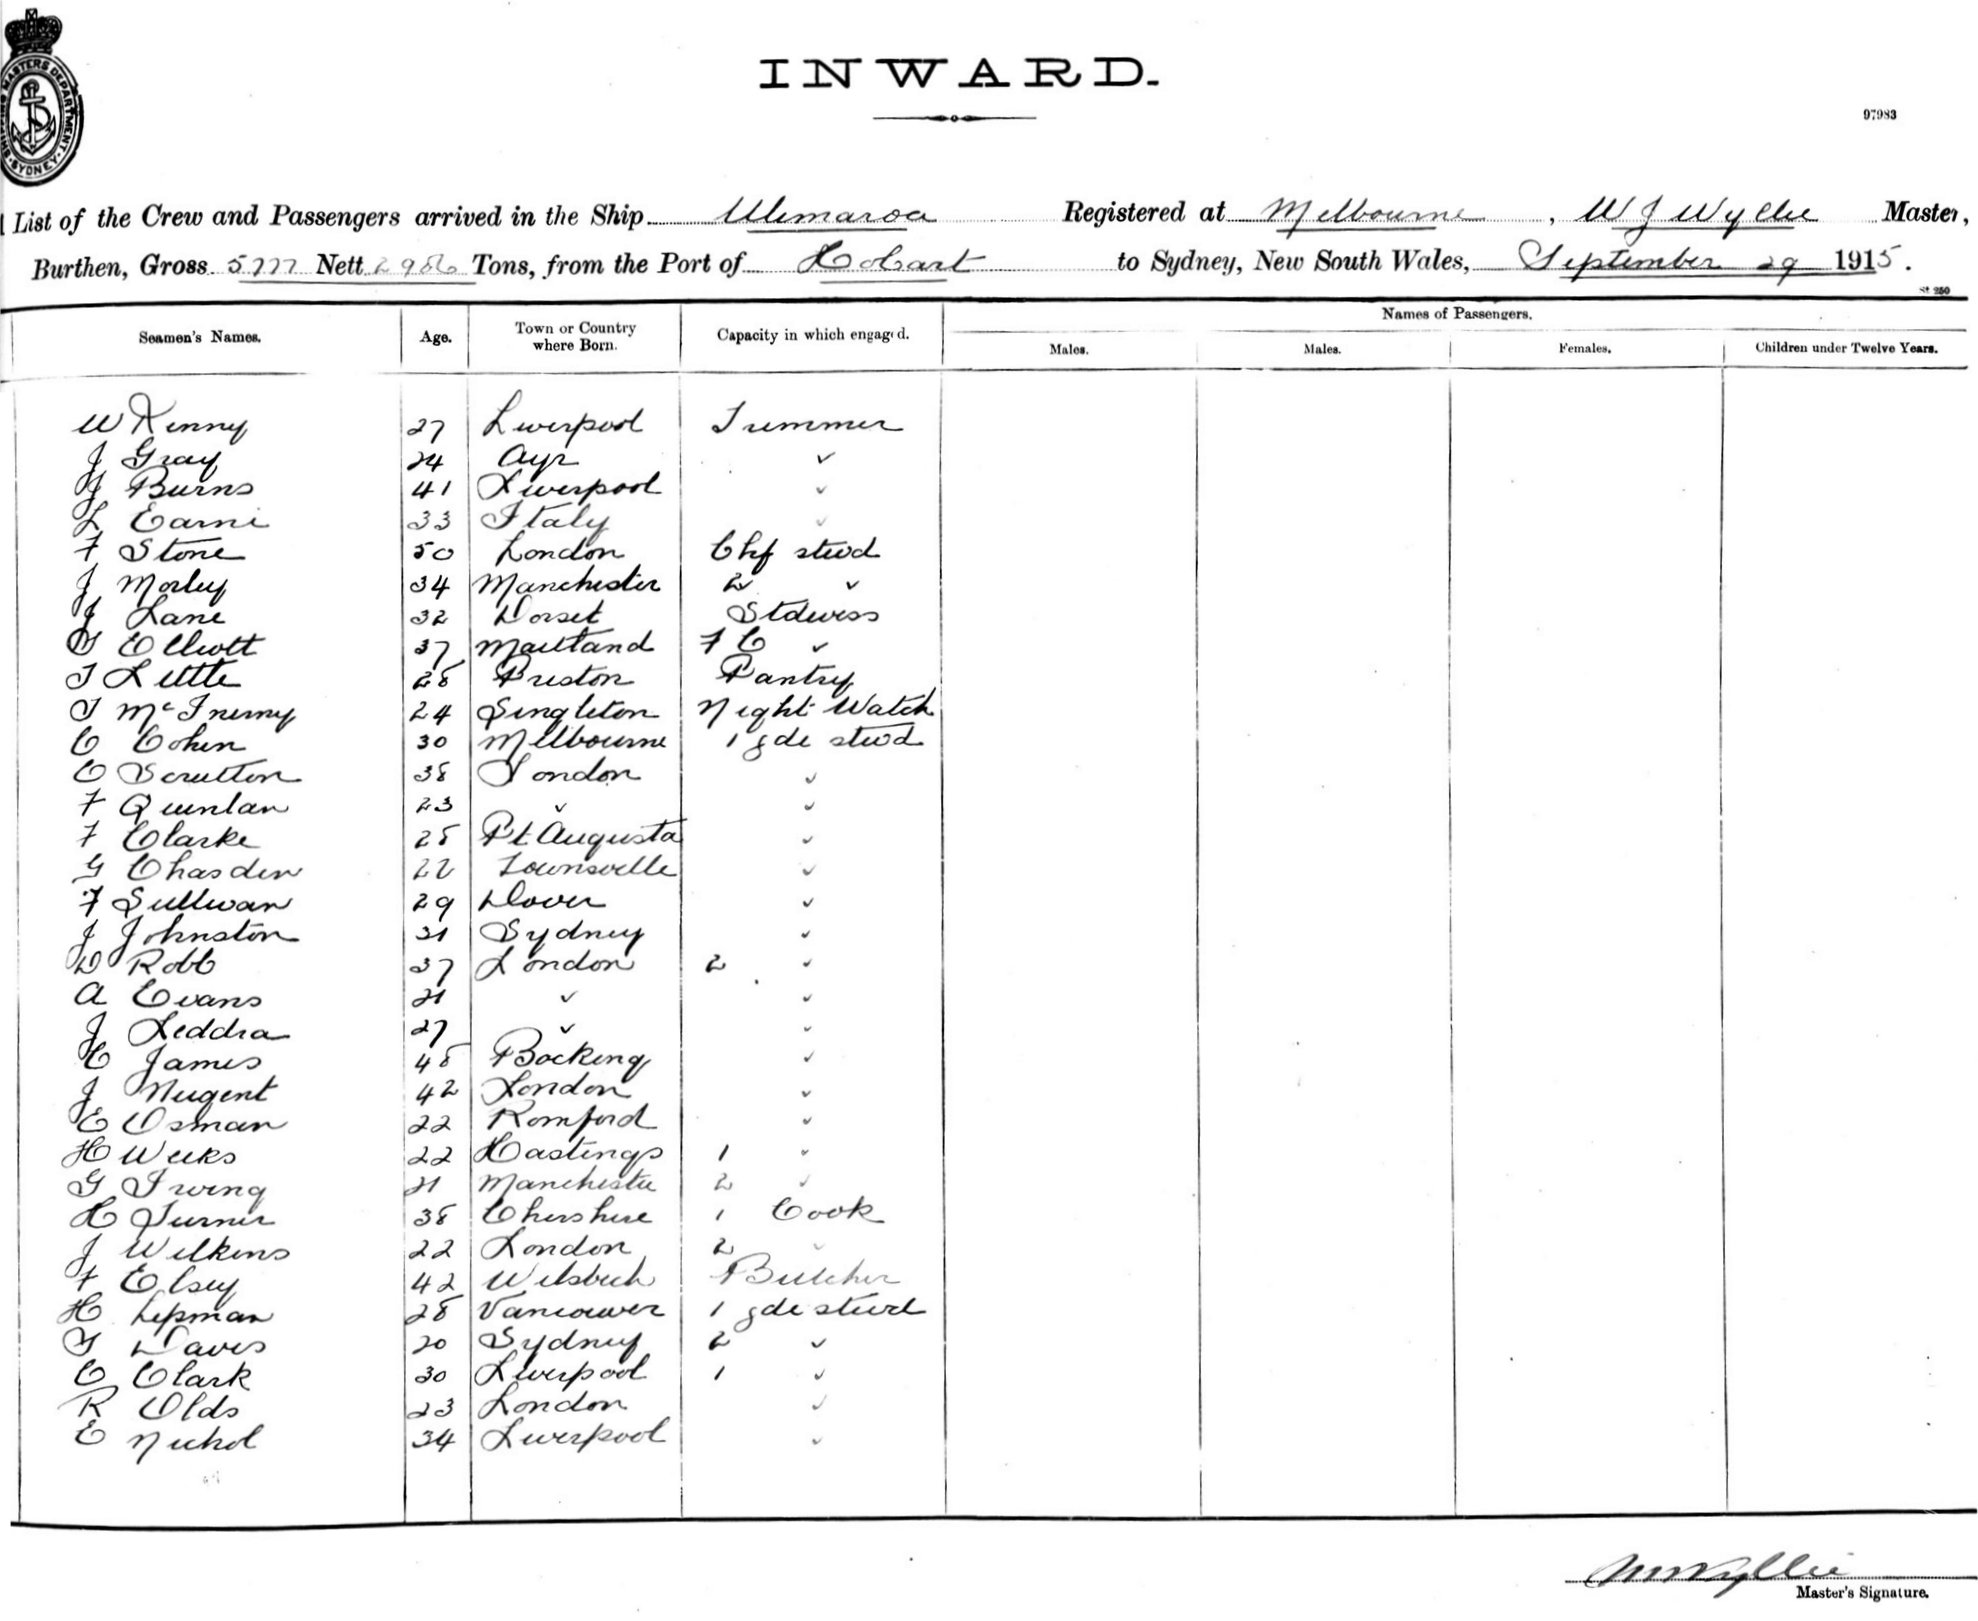 INWARD.
97983
SHIPPING MASTERS DEPARTMENT · SYDNEY ·
List of the Crew and Passengers arrived in the Ship Ulimaroa Registered at Melbourne, W J Wyllie Master,
Burthen, Gross 5777 Nett 2986 Tons, from the Port of Hobart to Sydney, New South Wales, September 29 1915.
St 250
Seamen's Names. Age. Town or Country where Born. Capacity in which engaged. Names of Passengers.
Males. Males. Females. Children under Twelve Years.
W Kenny 27 Liverpool Trimmer
J Gray 24 Ayr ✓
J Burns 41 Liverpool ✓
L Earni 33 Italy ✓
F Stone 50 London Chf stwd
J Morley 34 Manchester 2 ✓
J Lane 32 Dorset Stdwess
G Elliott 37 Maitland F C ✓
T Little 28 Preston Pantry
T McInerny 24 Singleton Night Watch
C Cohen 30 Melbourne 1 gde stwd
C Scrutton 38 London ✓
F Quinlan 23 ✓ ✓
F Clarke 28 Pt Augusta ✓
G Chasden 22 Townsville ✓
F Sullivan 29 Dover ✓
J Johnston 31 Sydney ✓
D Robb 37 London 2 ✓
A Evans 21 ✓ ✓
J Leddra 27 ✓ ✓
C James 48 Bocking ✓
J Nugent 42 London ✓
E Osman 22 Romford ✓
H Weeks 22 Hastings 1 ✓
G Irving 21 Manchester 2 ✓
H Turner 38 Cheshire 1 Cook
J Wilkins 22 London 2 ✓
F Elsey 42 Wisbech Butcher
H Lipman 28 Vancouver 1 gde stwd
G Davis 20 Sydney 2 ✓
C Clark 30 Liverpool 1 ✓
R Olds 23 London ✓
E Nichol 34 Liverpool ✓
WJWyllie
Master's Signature.